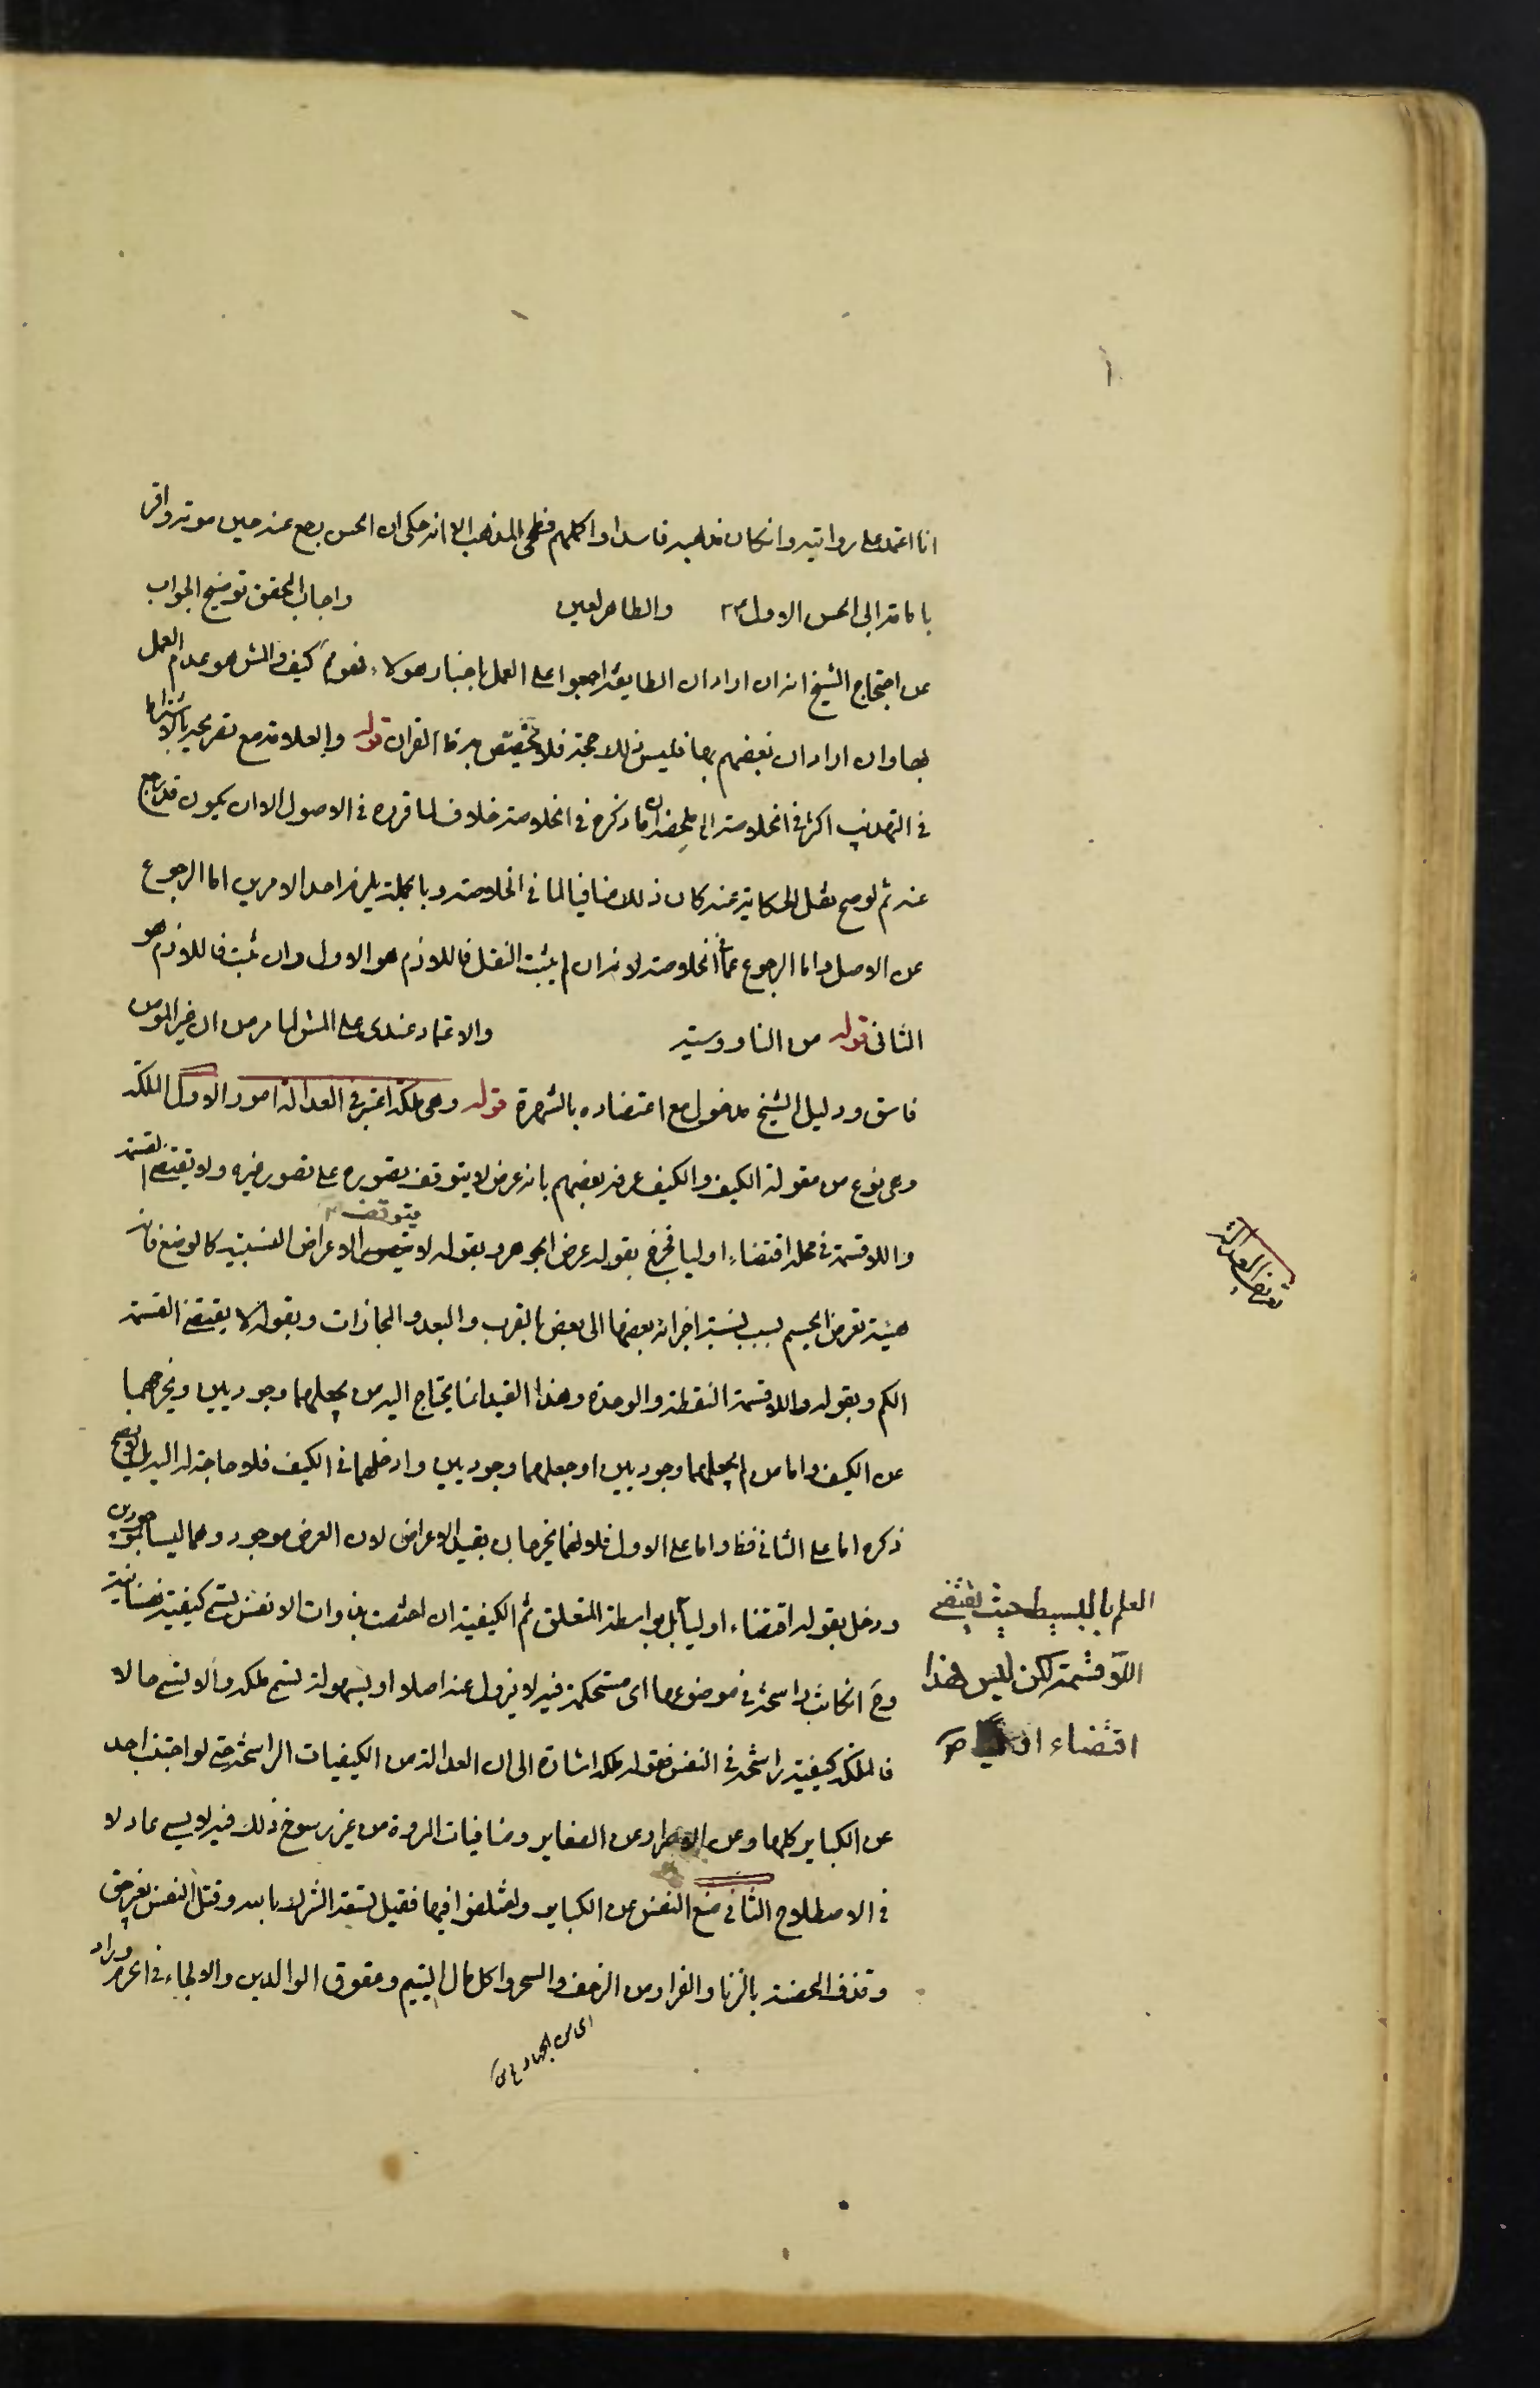 انا اعتمد على روايته وانكان مذهبه فاسدا واكلهم فطحى المذهب الا انه حكى ان الحسن رجع عند حين موته واقر
بامامة ابى الحسن الاول والظاهر واجاب المحقق توضيح الجواب
عن احتجاج الشيخ انه ان اراد ان الطايفة اجمعوا على العمل باخبار هولاء نفوم كيف والمش هو عدم العمل
بها وان اراد ان بعضهم بها فليس ذلك حجة فلا تخصيص به ظاهر القران قوله والعلامة مع تصريحه بالاشتراط
فى التهذيب اكثر فى الخلاصة ان ما ذكره فى الخلاصة خلاف لما قرره فى الاصول الا ان يكون قد رجع
عنه ثم لو صح نقل الحكاية عنه كان ذلك منافيا لما فى الخلاصة وبالجملة يلزمه احد الامرين اما الرجوع
عن الاصل واما الرجوع عما فى الخلاصة لانه ان لم يثبت النقل فاللازم هو الاول وان ثبت فاللازم هو
الثانى قوله من الناووسية والاعتماد عندى على المش لما مر من ان غير المؤمن
فاسق ودليل الشيخ مدخول مع اعتضاده بالشهرة قوله وهى ملكة اعتبر فى العدالة امور الاول الملكة
وهى نوع من مقولة الكيف والكيف عرفه بعضهم بانه عرض لا يتوقف تصوره على تصور غيره ولا يقتضى القسمة
واللاقسمة فى محله اقتضاء اوليا فخرج بقوله عرض الجوهر وبقوله لا يتوقف الاعراض النسبية كالوضع فانه
هيئة تعرض الجسم بسبب نسبة اجزائه بعضها الى بعض بالقرب والبعد والمحاذات وبقوله لا يقتضى القسمة
الكم وبقوله واللاقسمة النقطة والوحدة وهذا القيد انما يحتاج اليه من يجعلهما وجوديين ويخرجهما
عن الكيف واما من لم يجعلهما وجوديين او جعلهما وجوديين وادخلهما فى الكيف فلا حاجة له اليه بل لا يصح
ذكره اما على الثانى فظ واما على الاول فلانهما يخرجان بقيد الاعراض لان العرض موجود وهما ليسا بموجودين
ودخل بقوله اقتضاء اوليا بل بواسطة المتعلق ثم الكيفية ان اختصت بذوات الانفس تسمى كيفية نفسانية
وح انكانت راسخة فى موضوعها اى مستحكمة فيه لا يزول عنه اصلا او بسهولة تسمى ملكة والا تسمى حالا
فالملكة كيفية راسخة فى النفس فقوله ملكة اشارة الى ان العدالة من الكيفيات الراسخة حتى لو اجتنب احد
عن الكباير كلها وعن الاصرار وعن الصغاير ومنافيات المروة من غير رسوخ ذلك فيه لا يسمى عادلا
فى الاصطلاح الثانى منع النفس عن الكباير واختلفوا فيها فقيل تسعة الشرك بالله وقتل النفس بغير حق
وقذف المحصنة بالزنا والفرار من الزحف والسحر واكل مال اليتيم وعقوق الوالدين والالحاد فى الحرم وزاد
اى من الجهاد
تعريف العدالة
العلم بالبسيط حيث يقتضى
اللاقسمة لكن ليس هذا
اقتضاء اوليا صح